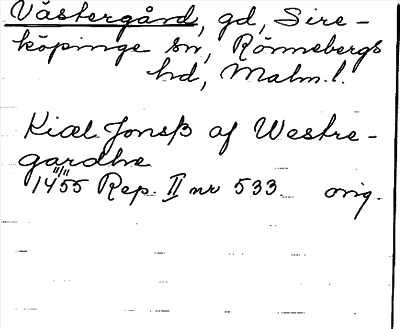 Västergård, gd, Sire-
köpinge sn, Rönnebergs
hd, Malm. l.
Kiæl Jonsß af Westre-
gardhe
11/11
1455 Rep. II nr 533. orig.